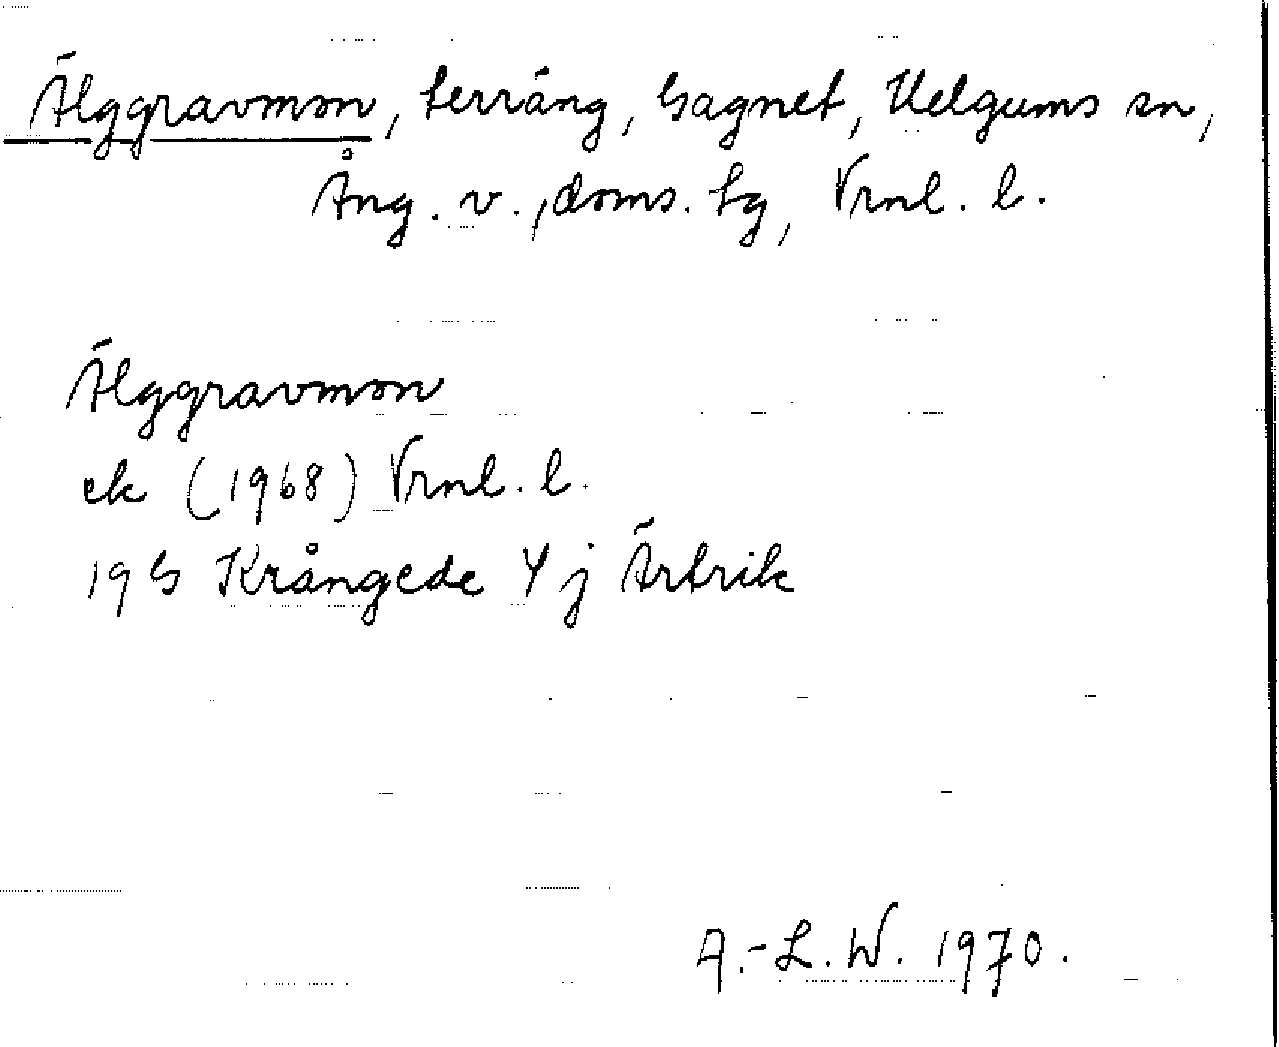 Älggravmon, terräng, Gagnet, Helgums sn,
Ång. v., doms. tg, Vrnl. l.
Älggravmon
ek (1968) Vrnl. l.
19 G Krångede 4 j Ärtrik
A.-L. W. 1970.